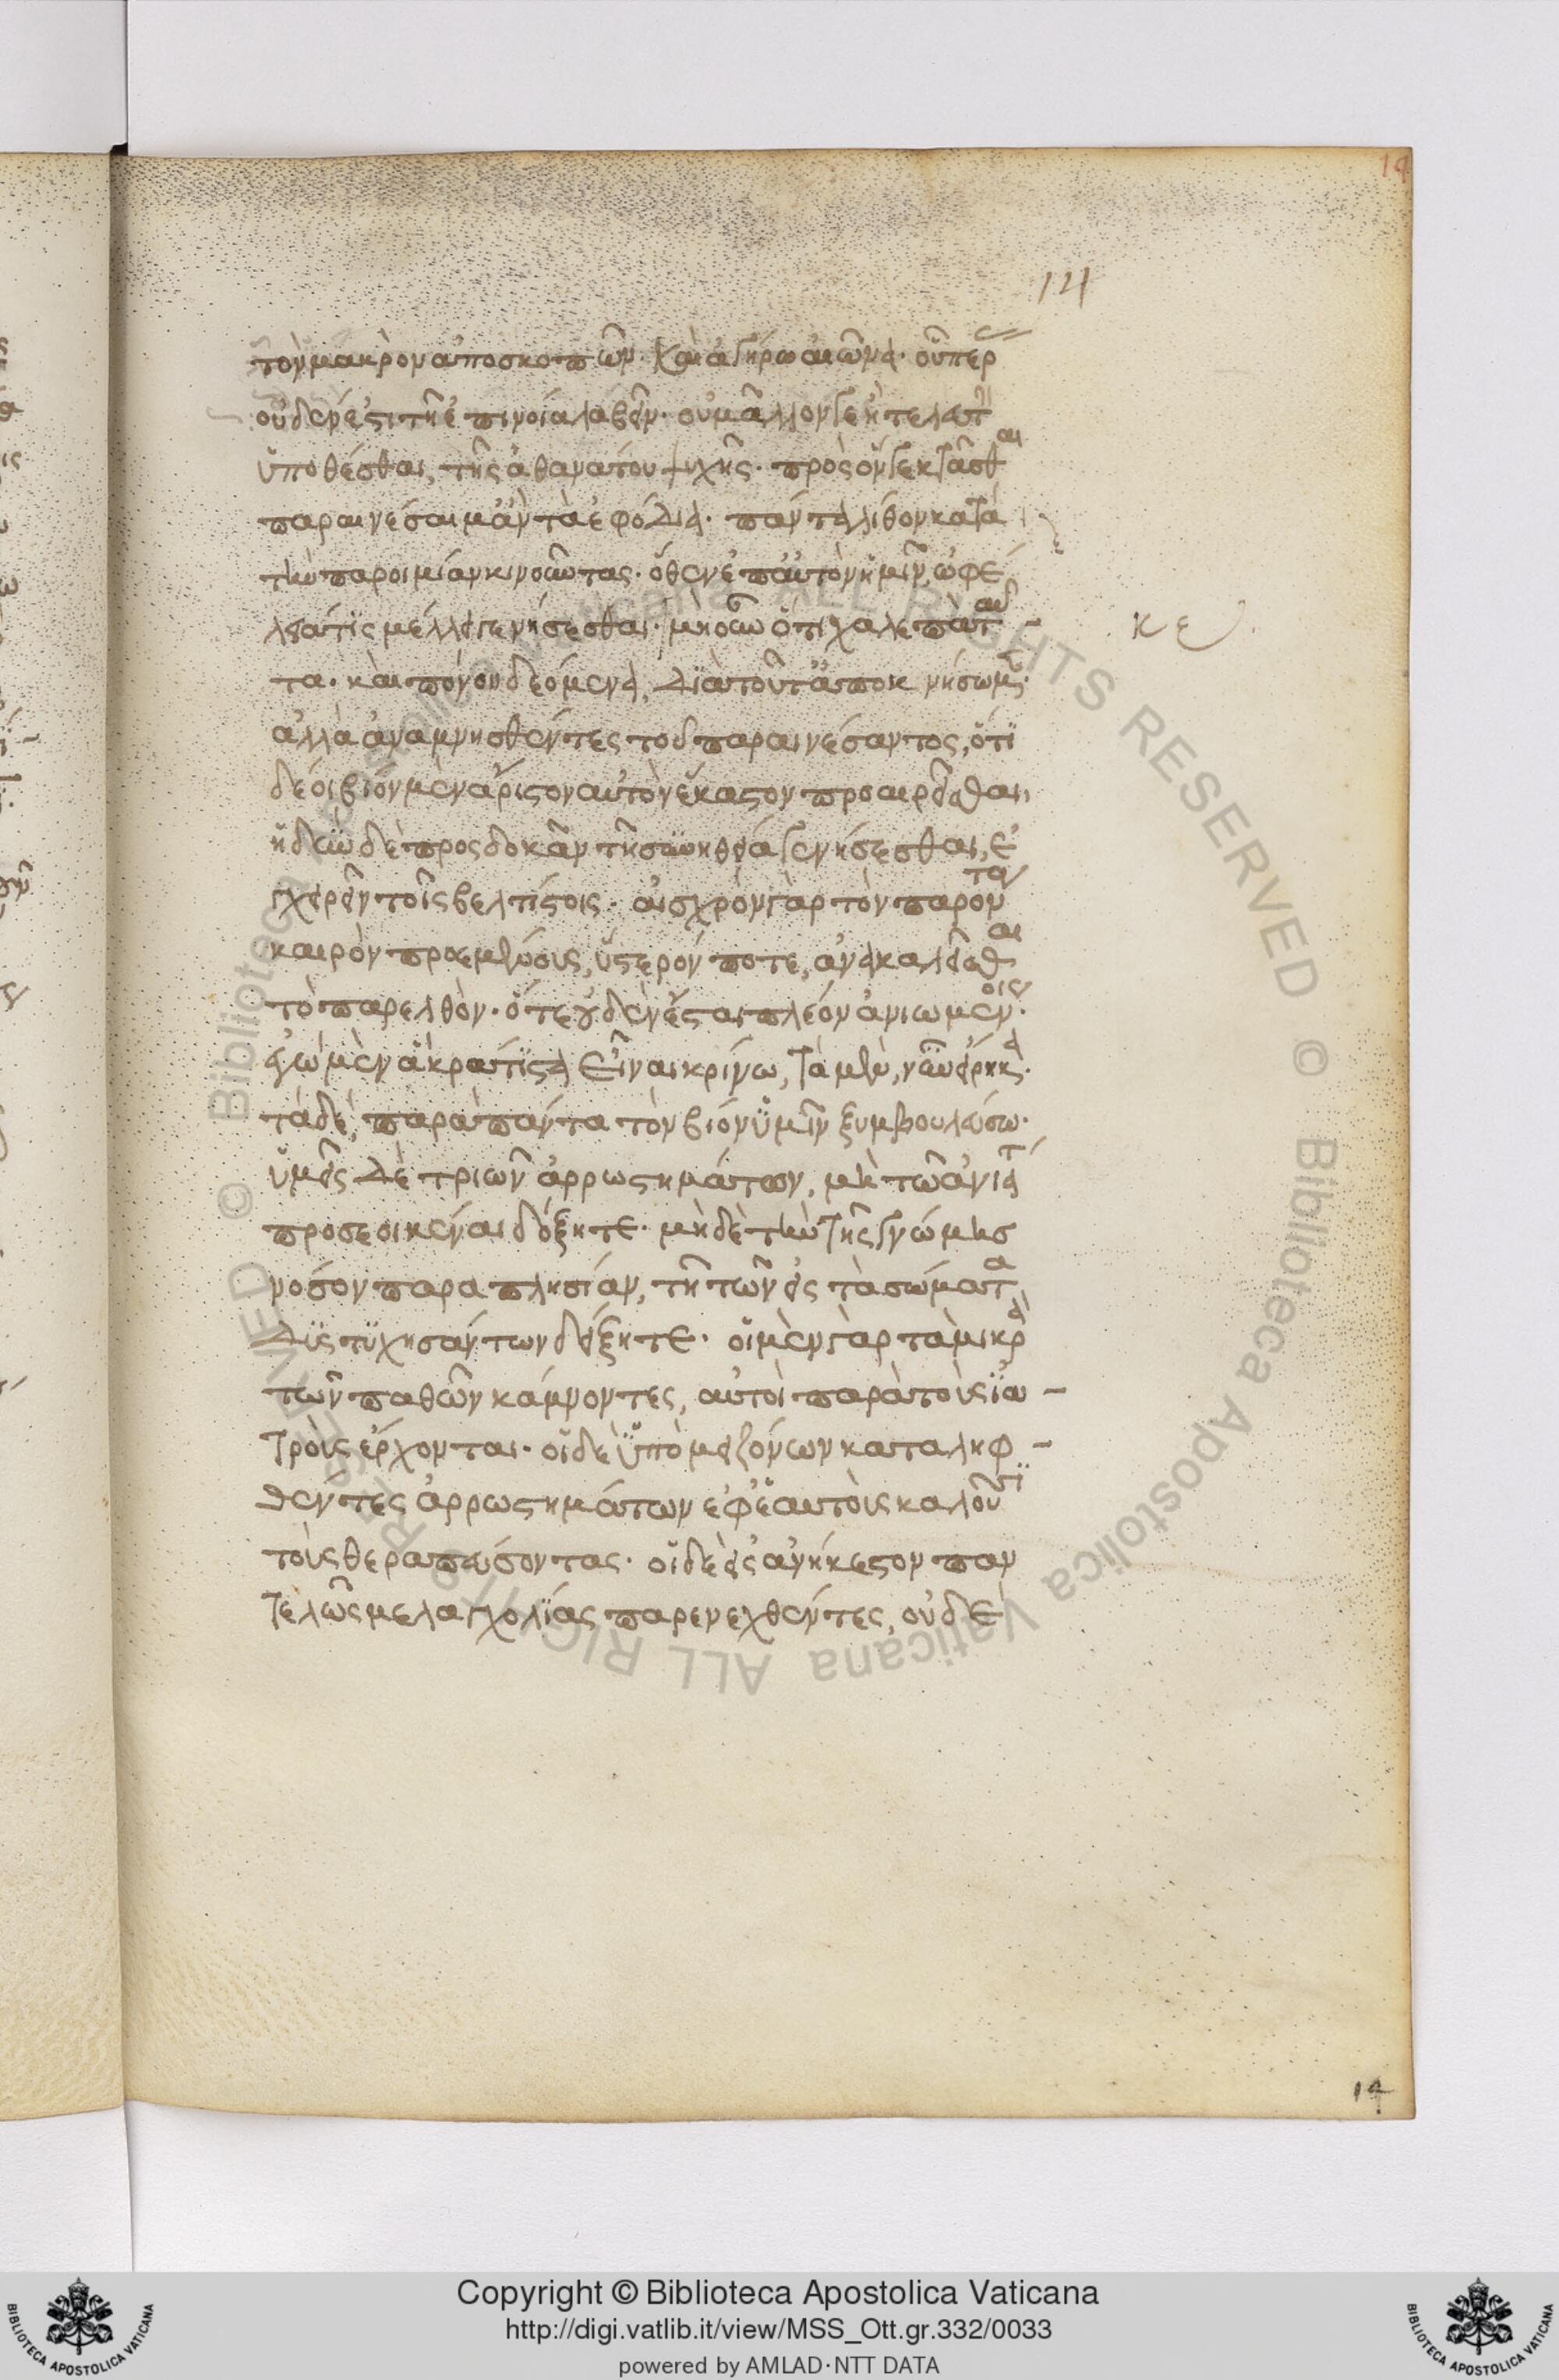 14
14
τὸν μακρὸν ἀποσκοπῶν· καὶ ἀγήρω αἰῶνα· οὗπερ
οὐδὲν ἔστι τῇ ἐπινοία λαβεῖν· οὐ μᾶλλον γε ἢ τελευτὴν
ὑποθέσθαι, τῆς ἀθανάτου ψυχῆς· πρὸς ὅν γε κτᾶσθαι
παραινέσαιμ' ἂν τὰ ἐφόδια· πάντα λίθον κατὰ
τὴν παροιμίαν κινοῦντας· ὅθεν ἐπ' αὐτὸν ἡμῖν ὠφέ
λειά τις μέλλει γενήσεσθαι· μὴ οὖν ὅτι χαλεπὰ ταῦ-
τα· καὶ πόνου δεόμενα, διὰ τοῦτ' ἀποκνήσωμεν·
ἀλλὰ ἀναμνησθέντες τοῦ παραινέσαντος, ὅτι
δέοι βίον μὲν ἄριστον αὐτὸν ἕκαστον προαιρεῖσθαι,
ἡδεῖν δὲ προσδοκᾶν τῇ συνηθεία γενήσεσθαι, ἐ
γχειρεῖν τοῖς βελτίστοις· αἰσχρὸν γὰρ τὸν παρόντα
καιρὸν προεμένους, ὕστερόν ποτε, ἀνακαλεῖσθαι
τὸ παρελθὸν· ὅτε οὐδὲν ἔσται πλέον ἀνιωμένοις·
ἐγὼ μὲν ἃ κράτιστα εἶναι κρίνω, τὰ μὲν, νῦν εἴρηκα·
τὰ δὲ, παρὰ πάντα τὸν βίον ὑμῖν ξυμβουλεύσω·
ὑμεῖς δὲ τριῶν ἀρρωστημάτων, μὴ τῶ ἀνιάτ
προσεοικέναι δόξητε· μηδὲ τὴν τῆς γνώμης
νόσον παραπλησίαν, τῇ τῶν εἰς τὰ σώματα
δυστυχησάντων δείξητε· οἱ μὲν γὰρ τὰ μικρὰ
τῶν παθῶν κάμνοντες, αὐτοὶ παρὰ τοὺς ἰα-
τροὺς ἔρχονται· οἱ δὲ ὑπὸ μειζόνων καταληφ-
θέντες ἀρρωστημάτων ἐφ' ἑαυτοὺς καλοῦσι
τοὺς θεραπεύσοντας· οἱ δὲ εἰς ἀνήκεστον παν
τελῶς μελαγχολίας παρενεχθέντες, οὐδὲ
κε
14
Copyright © Biblioteca Apostolica Vaticana
http://digi.vatlib.it/view/MSS_Ott.gr.332/0033
powered by AMLAD·NTT DATA